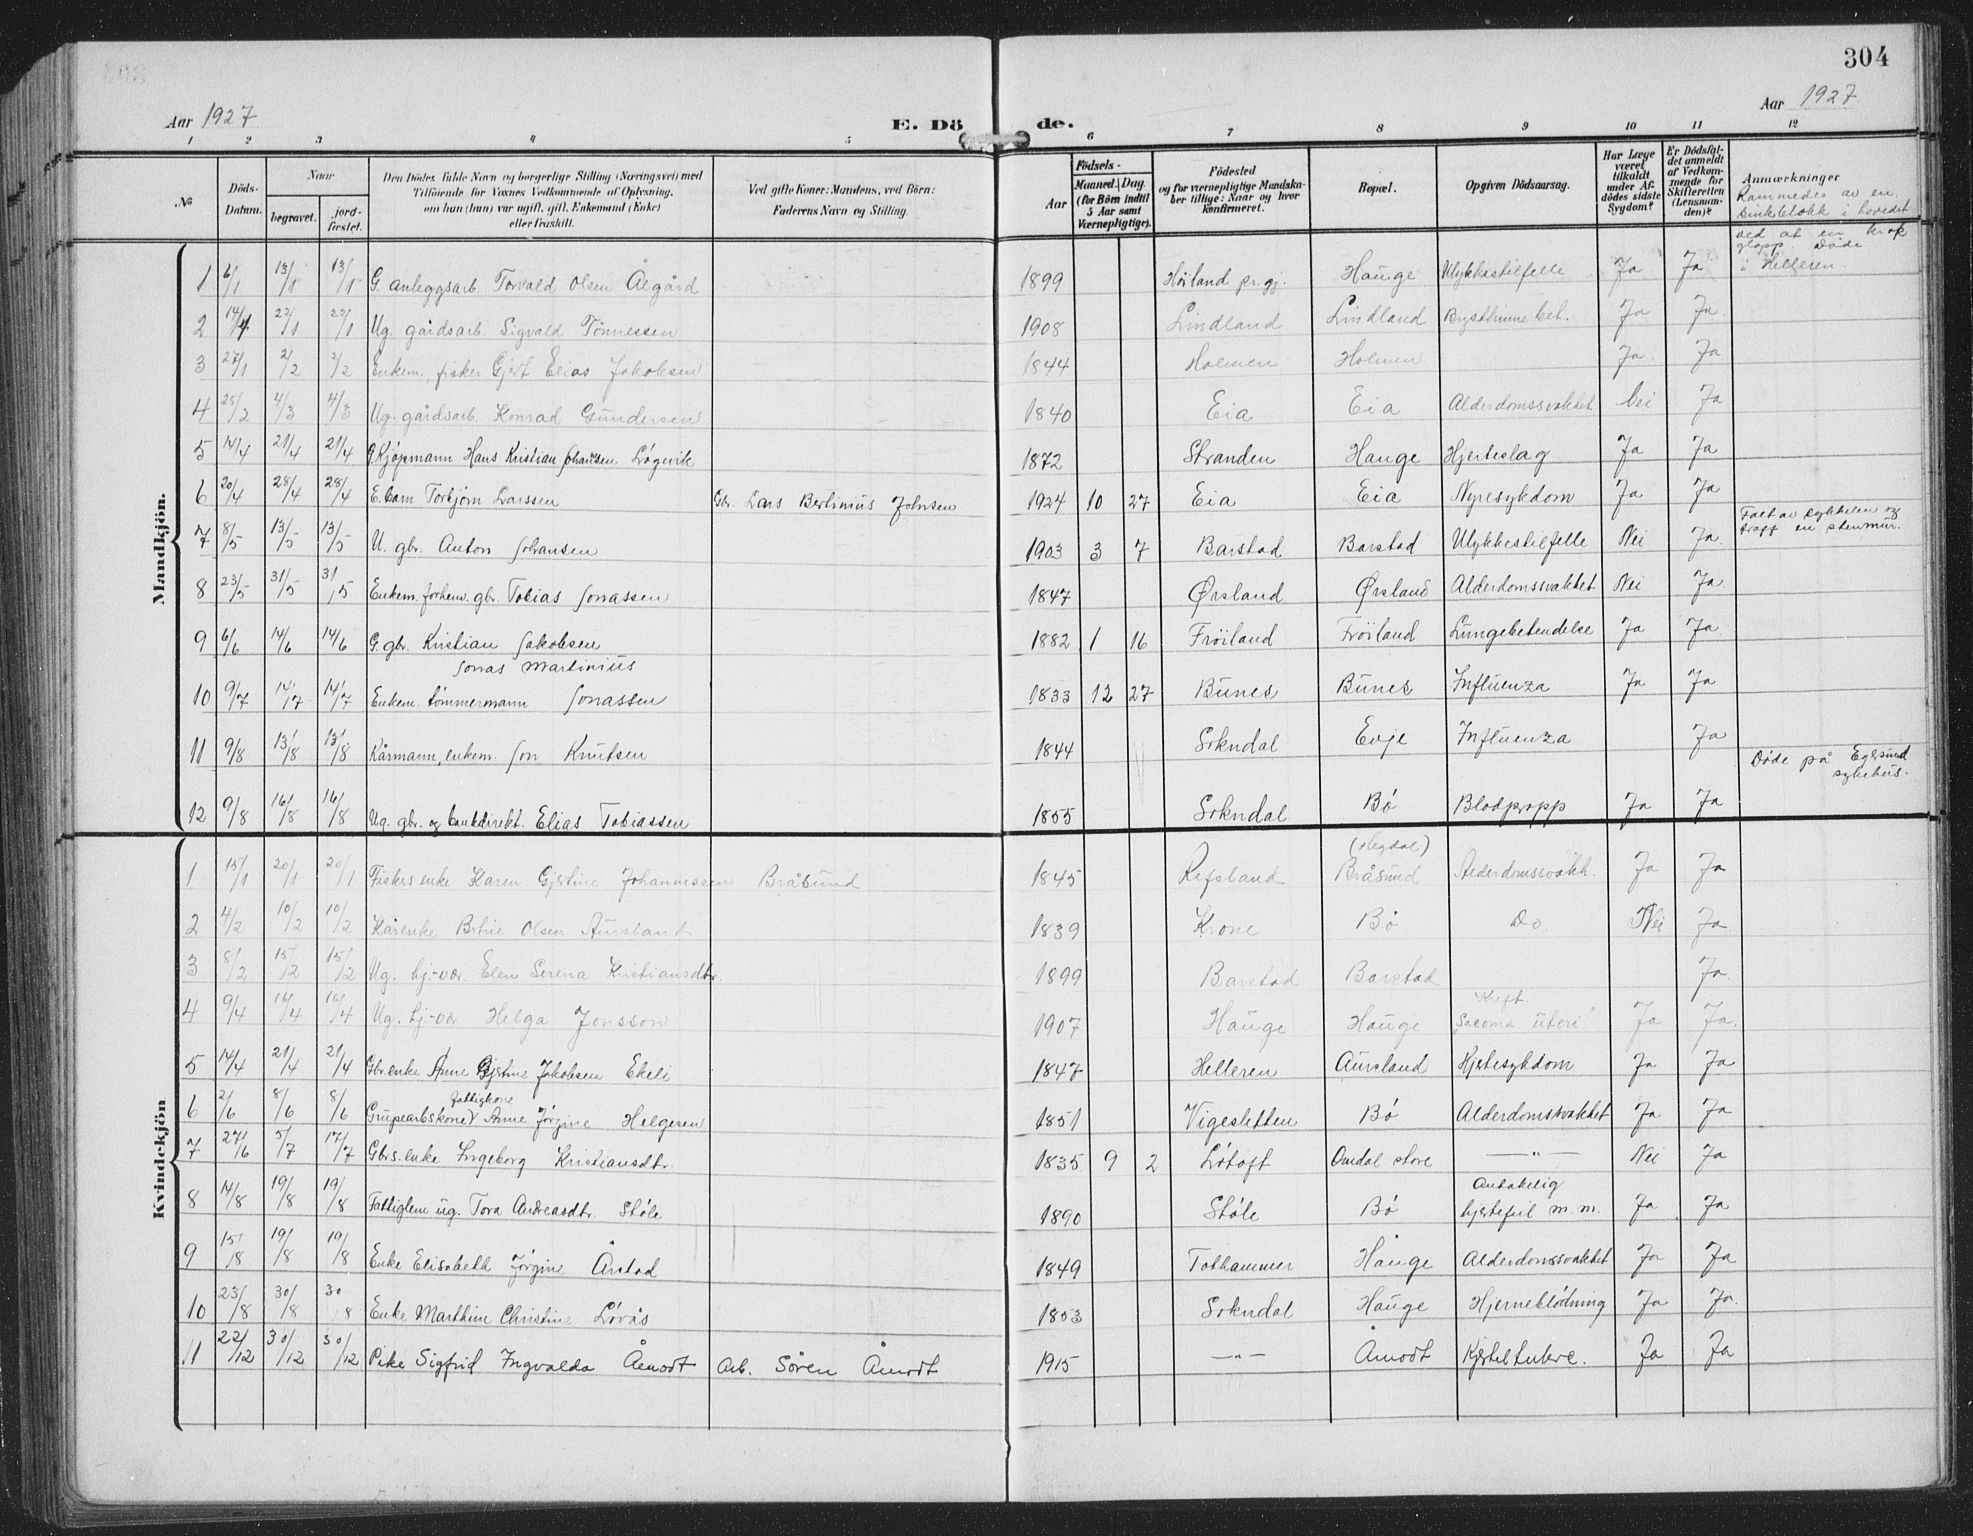 304
Aar 1927
E. Döde.
Aar 1927
1 2 3 4 5 6 7 8 9 10 11 12
No
Döds-Datum.
Naar
begravet.
jord-fæstet.
Den Dödes fulde Navn og borgerlige Stilling (Næringsvei) med
Tilföiende for Voxnes Vedkommende af Oplysning,
om han (hun) var ugift, gift, Enkemand (Enke)
eller fraskilt.
Ved gifte Koner: Mandens, ved Börn:
Faderens Navn og Stilling.
Födsels-
Aar
Maaned. Dag.
(for Börn indtil
5 Aar samt
Værnepligtige).
Födested
og for værnepligtige Mandska-
ber tillige: Naar og hvor
konfirmeret.
Bopæl.
Opgiven Dödsaarsag.
Har Læge
været
tilkaldt
under Af-
dödes sidste
Sygdom?
Er Dödsfal-
det anmeldt
af Vedkom-
mende for
Skifteretten
(Lensman-
den)?
Anmærkninger
Rammedes av en
blokk i hovedet
ved at en krok
glapp. Døde
i Helleren.
Mandkjön.
1 6/1 13/1 13/1 G. anleggsarb. Torvald Olsen Ålgård 1899 Høiland pr.gj. Hauge Ulykkestilfelle Ja Ja
2 14/4 22/1 22/1 Ug. gårdsarb. Sigvald Tönnessen 1908 Lindland Lindland Brysthinnebet. Ja Ja
3 27/1 2/2 2/2 Enkem., fisker Gjert Elias Jakobsen 1844 Holmen Holmen Ja Ja
4 25/2 4/3 4/3 Ug. gårdsarb. Konrad Gundersen 1840 Eia Eia Alderdomssvakhet Nei Ja
5 14/4 21/4 21/4 G. Kjøpmann Hans Kristian Johansen Løgevik 1872 Stranden Hauge Hjerteslag Ja Ja
6 20/4 28/4 28/4 E. barn Torbjørn Larssen Gbr. Lars Bertinius Johnsen 1924 10 27 Eia Eia Nyresykdom Ja Ja
7 8/5 13/5 13/5 U. gbr. Anton Johansen 1903 3 7 Barstad Barstad Ulykkestilfelle Nei Ja Falt av sykkelen og
traff en stenmur.
8 23/5 31/5 31/5 Enkem. forhenv. gbr. Tobias Jonassen 1847 Ørsland Ørsland Alderdomssvakhet Nei Ja
9 6/6 14/6 14/6 G. gbr. Kristian Jakobsen 1882 1 16 Frøiland Frøiland Lungebetendelse Ja Ja
Jonas Martinius
10 9/7 14/7 14/7 Enkem. tømmermann Jonassen 1833 12 27 Bunes Bunes Influenza Ja Ja
11 9/8 13/8 13/8 Kårmann, enkem. Jon Knutsen 1844 Sokndal Evje Influenza Ja
Døde på Egersund
sykehus.
12 9/8 16/8 16/8 Ug. gbr. og bankdirekt. Elias Tobiassen 1855 Sokndal Bø Blodpropp Ja Ja
Kvindekjön
(Regdal)
1 15/1 20/1 20/1 Fiskers enke Karen Gjertine Johannessen Bråsund 1845 Refsland Bråsund Alderdomssvakh. Ja Ja
2 4/2 10/2 10/2 Kårenke Bertine Olsen Aursland 1839 Krone Bø Do. Nei Ja
3 8/2 15/2 15/2 Ug. hj.-vær. Elen Serena Kristiansdtr. 1899 Barstad Barstad Ja
Kreft
4 9/4 16/4 16/4 Ug. hj-vær Helga Jonsson 1907 Hauge Hauge "Sacoma uteri" Ja Ja
5 14/4 21/4 21/4 Gbr. enke Anne Gjertine Jakobsen Ekeli 1847 Helleren Aursland Hjertesykdom Ja Ja
fattigkone
6 2/6 8/6 8/6 Grupearbskone Anne Jørgine Helgesen 1851 Vigesletten Bø Alderdomssvakhet Ja Ja
7 27/6 5/7 17/7 Gbrs. enke Ingeborg Kristiansdtr. 1835 9 2 Løtoft Omdal store —"— Nei Ja
Antakelig
8 14/8 19/8 19/8 Fattiglem ug. Tora Andreasdtr. Støle 1890 Støle Bø hjertefeil m.m. Ja Ja
9 15/8 19/8 19/8 Enke Elisabeth Jørgine Årstad 1849 Tothammer Hauge Alderdomssvakhet Ja Ja
10 23/8 30/8 30/8 Enke Marthine Christine Løvås 1853 Sokndal Hauge Hjerneblødning Ja Ja
11 22/12 30/12 30/12 Pike Sigfrid Ingvalda Åmodt Arb. Søren Åmodt 1915 —"— Åmodt Kjerteltuberc. Ja Ja